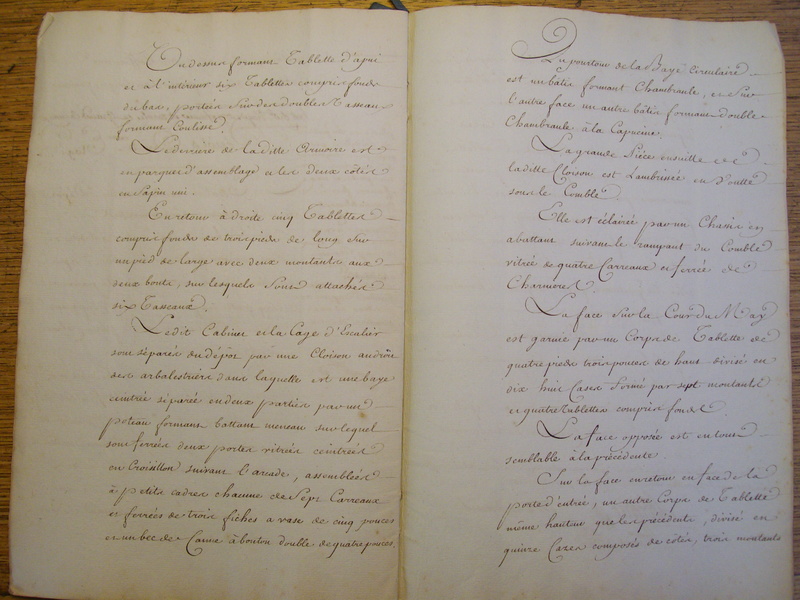 Au dessus formant Tablette d'apui
et à l'intérieur six Tablettes compris fond
du bas, portées sur des doubles Tasseaux
formant Coulisse.
Le derriere de la ditte Armoire est
en parquet d'assemblage et les deux côtés
en Sapin uni.
En retour à droite cinq Tablettes
compris fonds de trois pieds de long sur
un pied de large avec deux montants aux
deux bouts, sur lesquels sont attachés
six Tasseaux.
Ledit Cabinet et la Cage d'Escalier
sont séparés du dépôt par une Cloison au droit
des arbalestriers dans laquelle est une baye
ceintrée séparée en deux parties par un
poteau formant battant meneau sur lequel
sont ferrées deux portes vitrées ceintrées
en Croisillon suivant l'arcade, assemblées
à petits cadres chacune de Sept Carreaux
et ferrées de trois fiches a vase de cinq pouces
et un bec de Canne à bouton double de quatre pouces.
Au pourtour de la Baye Circulaire
est un bâtis formant Chambranle, et sur
l'autre face un autre bâtis formant double
Chambranle à la Capucine.
La grande Piéce ensuitte de
la ditte Cloison est Lambrissée en Voutte
sous le Comble.
Elle est éclairée par un Chassis en
abattant suivant le rampant du Comble
vitrée de quatre Carreaux et ferrée de
Charnieres.
La face sur la Cour du May
est garnie par un Corps de Tablette de
quatre pieds trois pouces de haut divisé en
dix huit Cases formé par sept montants
et quatre Tablettes compris fonds.
La face opposée est en tout
semblable à la précédente.
Sur la face en retour en face de la
porte d'entrée, un autre Corps de Tablette
même hauteur que les précédents, divisé en
quinze Cazes composés de côtés, trois montants